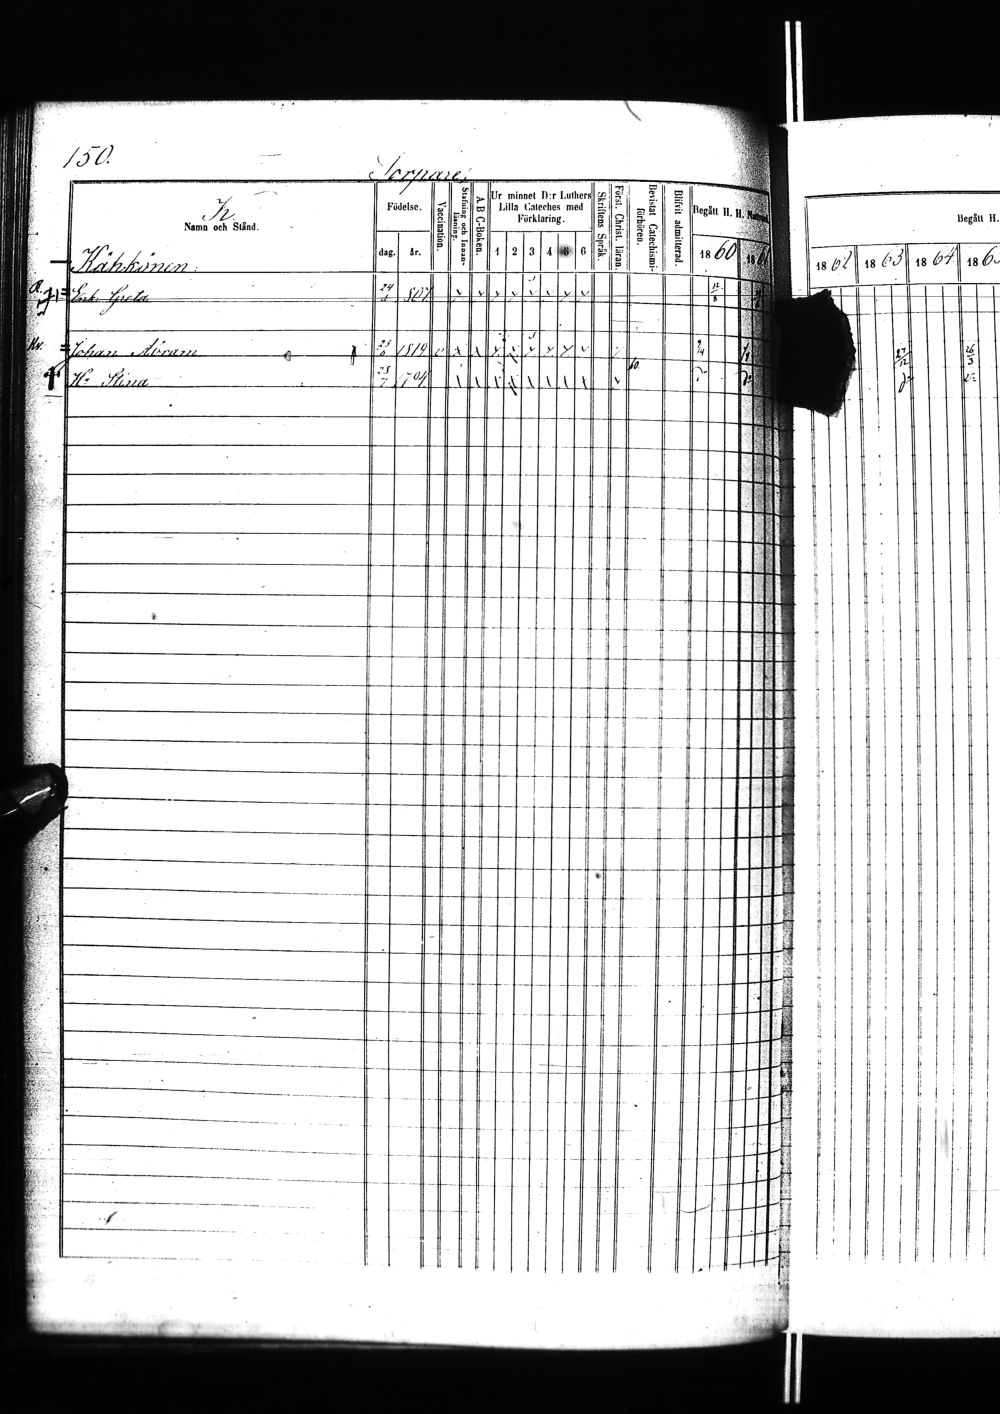 150.
Torpare
K.
Namn och Stånd.
Födelse.
dag. år.
Vaccination.
Stafning och Innanläsning.
A B C-Boken.
Ur minnet D:r Luthers Lilla Cateches med Förklaring.
1 2 3 4 5 6
Skriftens Språk.
Först. Christ. läran.
Bevistat Catechismiförhören.
Blifvit admitterad.
Begått H. H. Nattvard
1860 1861
Begått H.
1862 1863 1864 186
Kähkönen.
Enk. Greta 24 1807
Johan Abram 25/6 1819
H:u Stina 25/7 1794
60.
27/12
26/3